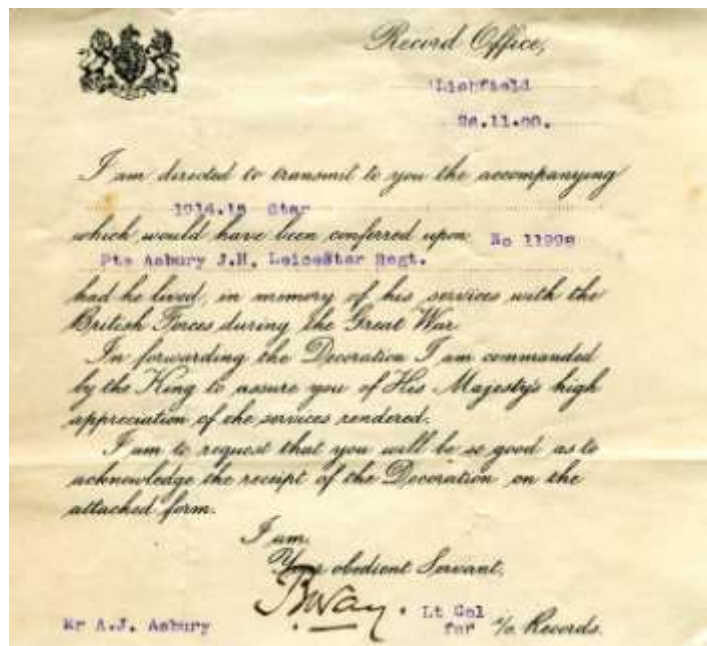 Record Office,
Lichfield
11.
I am directed to transmit to you the accompanying
Star
which would have been conferred upon No
Pte Asbury J.H. Leicester Regt.
had he lived, in memory of his services with the
British Forces during the Great War.
In forwarding the Decoration I am commanded
by the King to assure you of His Majesty's high
appreciation of the services rendered.
I am to request that you will be so good as to
acknowledge the receipt of the Decoration on the
attached form.
I am,
Your obedient Servant,
Lt Col
Mr A.J. Asbury for i/c Records.